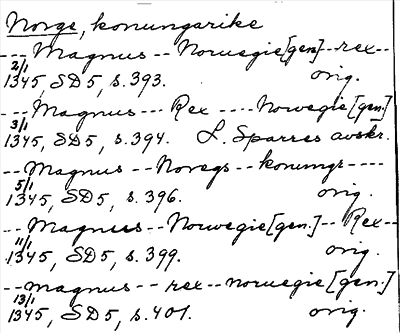 Norge, konungarike
--- Magnus -- Norwegie [gen] -- rex --
2/1 1345, SD 5, s. 393. orig.
--- Magnus --- Rex ---- Norwegie [gen.]
3/1 1345, SD 5, s. 394. L. Sparres avskr.
-- Magnus -- Noregs -- konungr ----
5/1 1345, SD 5, s. 396. orig.
-- Magnus -- Norwegie [gen.] -- Rex --
11/1 1345, SD 5, s. 399. orig.
--- Magnus -- rex -- norwegie [gen.]
13/1 1345, SD 5, s. 401. orig.